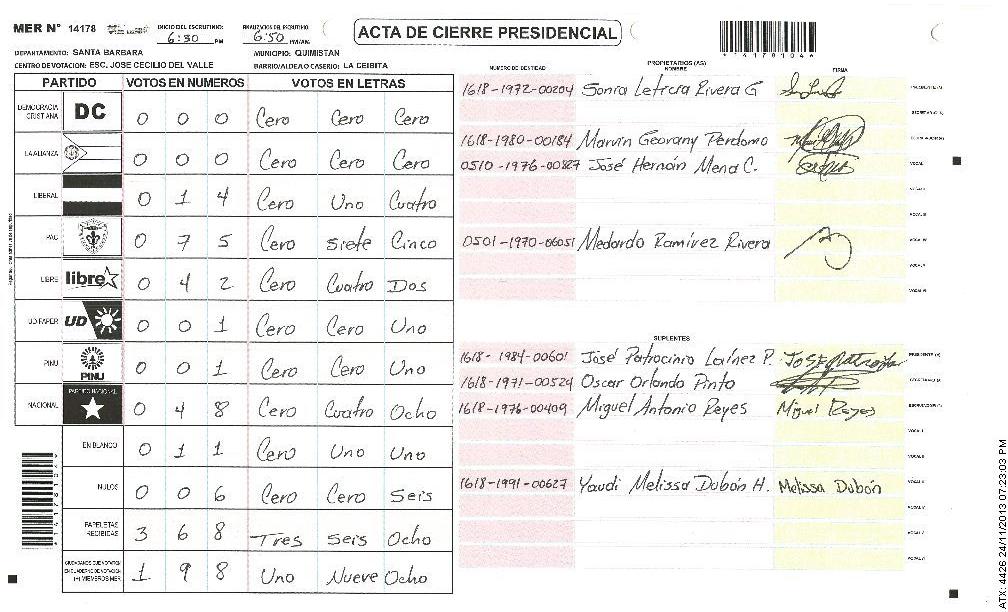 MER N° 14178 INICIO DEL ESCRUTINIO: 6:30 PM FINALIZACION DEL ESCRUTINIO: 6:50 PM/AM ACTA DE CIERRE PRESIDENCIAL
DEPARTAMENTO: SANTA BARBARA MUNICIPIO: QUIMISTAN
CENTRO DE VOTACION: ESC. JOSE CECILIO DEL VALLE BARRIO/ALDEA O CASERIO: LA CEIBITA
PARTIDO VOTOS EN NUMEROS VOTOS EN LETRAS
DEMOCRACIA CRISTIANA DC 0 0 0 Cero Cero Cero
LA ALIANZA 0 0 0 Cero Cero Cero
LIBERAL 0 1 4 Cero Uno Cuatro
PAC 0 7 5 Cero Siete Cinco
LIBRE libre 0 4 2 Cero Cuatro Dos
UD FAPER UD 0 0 1 Cero Cero Uno
PINU PINU 0 0 1 Cero Cero Uno
NACIONAL PARTIDO NACIONAL 0 4 8 Cero Cuatro Ocho
EN BLANCO 0 1 1 Cero Uno Uno
NULOS 0 0 6 Cero Cero Seis
PAPELETAS RECIBIDAS 3 6 8 Tres Seis Ocho
1 9 8 Uno Nueve Ocho
PROPIETARIOS (AS)
NUMERO DE IDENTIDAD NOMBRE FIRMA
1618-1972-00204 Sonia Leticia Rivera G
1618-1980-00184 Marvin Geovany Perdomo
0510-1976-00827 José Hernán Mena C.
0501-1970-06051 Medardo Ramírez Rivera
SUPLENTES
1618-1984-00601 José Patrocinio Laínez P.
1618-1971-00524 Oscar Orlando Pinto
1618-1976-00409 Miguel Antonio Reyes Miguel Reyes
1618-1991-00627 Yaudi Melissa Dubón H. Melissa Dubón
ATX: 4426 24/11/2013 07:23:03 PM